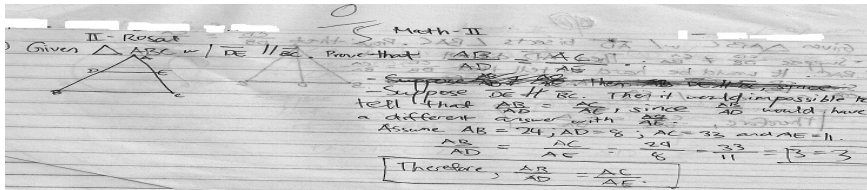 0/5 Math-II
II - Rosal
Given △ ABC w/ DE // BC. Prove that AB/AD = AC/AE.
A
D E
B C
- Suppose DE ∦ BC. Then it would impossible to
tell that AB/AD = AC/AE, since AB/AD would have
a different answer with AC/AE.
Assume AB = 24; AD = 8; AC = 33 and AE = 11.
AB/AD = AC/AE = 24/8 = 33/11 = 3 = 3
Therefore, AB/AD = AC/AE.